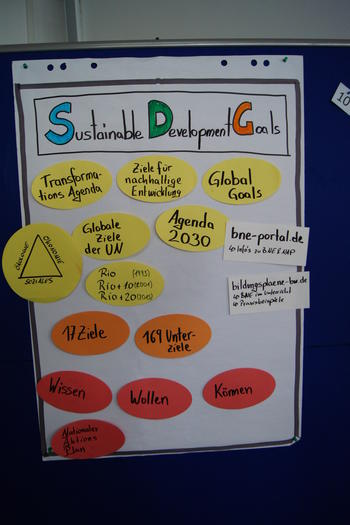 Sustainable Development Goals
Transforma-
tions Agenda
Ziele für
nachhaltige
Entwicklung
Global
Goals
ÖKOLOGIE
ÖKONOMIE
SOZIALES
Globale
Ziele
der UN
Agenda
2030
bne-portal.de
Rio
Rio+10
Rio+20
bildungsplaene-bw.de
BNE im Unterricht
Praxisbeispiele
17 Ziele
169 Unter-
ziele
Wissen
Wollen
Können
Nationaler
Aktions
Plan
10